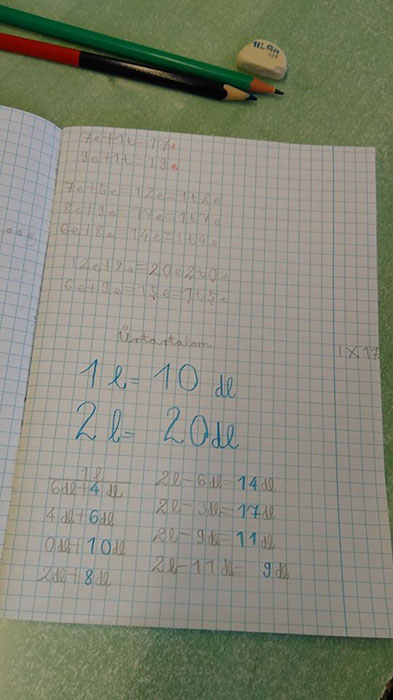 7e+1t=17e
9e+1t=19e
7e+5e=12e=1t2e
8e+9e=17e=1t7e
6e+8e=14e=1t4e
12e+8e=20e2t0e
6e+9e=15e=1t5e
Űrtartalom
IX 17
1 l = 10 dl
2 l = 20 dl
1l
6dl+4dl
2l-6dl=14dl
4dl+6dl
2l-3dl=17dl
0dl+10dl
2l-9dl=11dl
2dl+8dl
2l-11dl=9dl